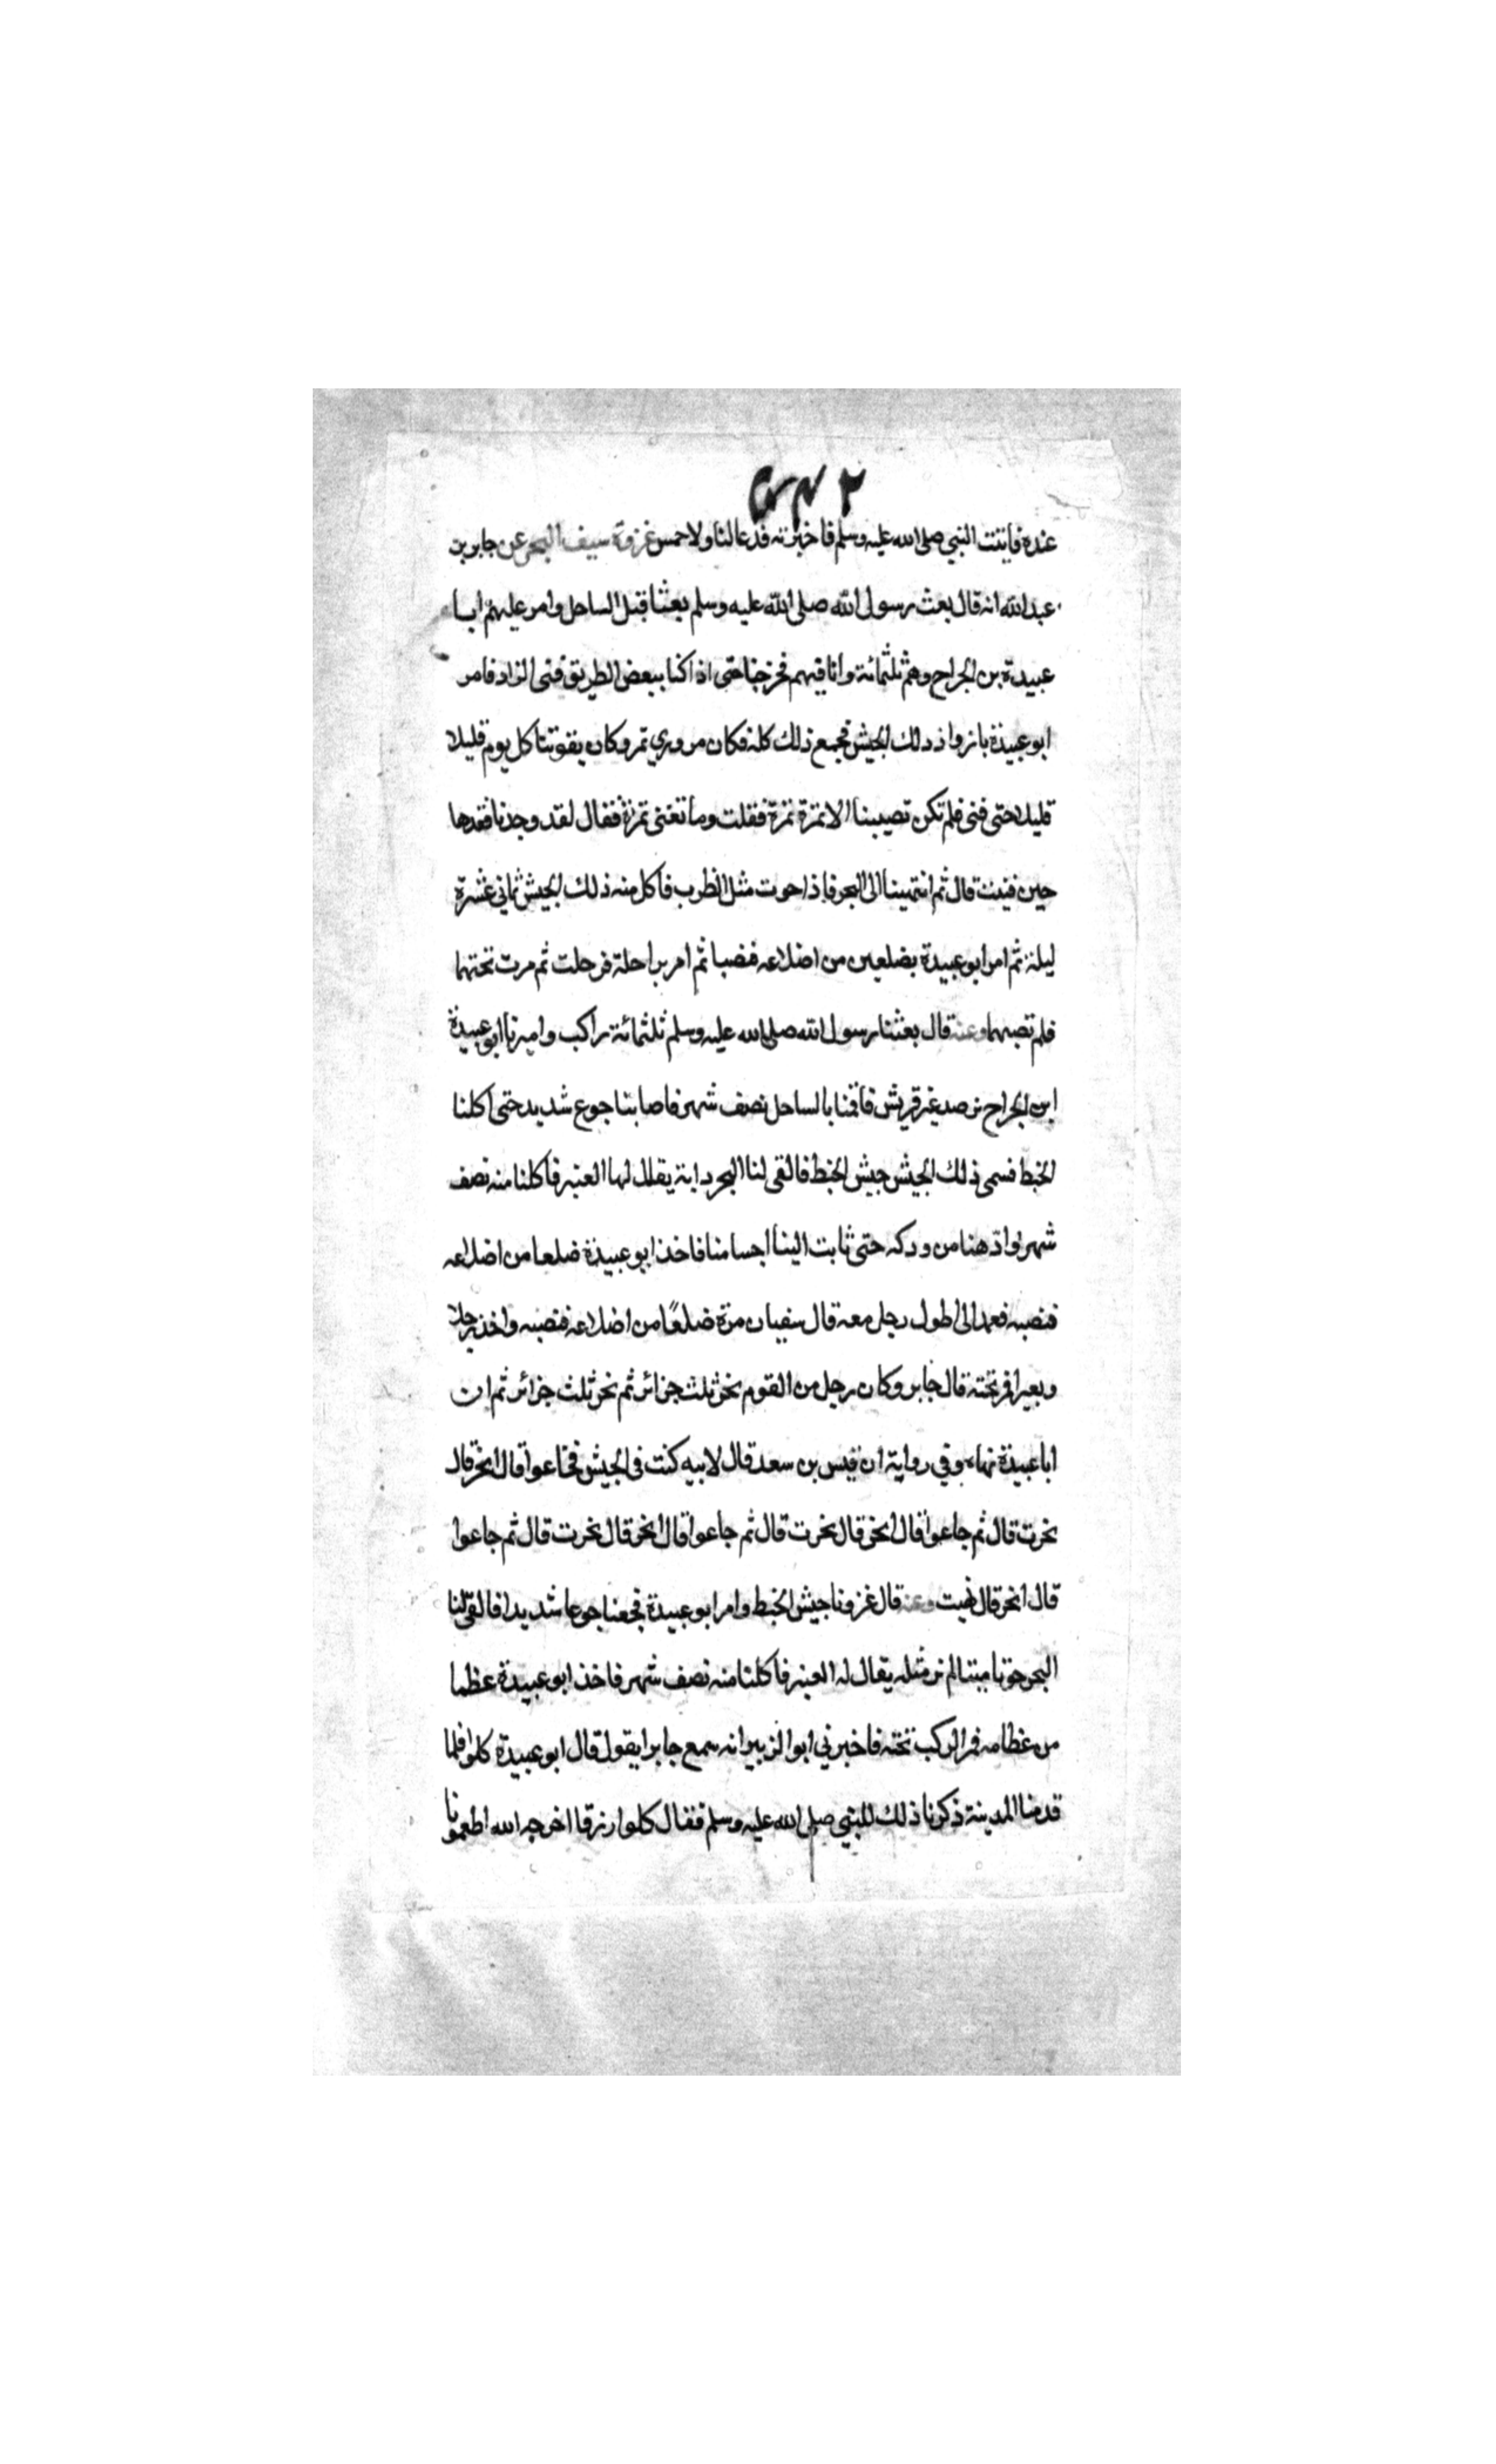 عنده فاتيت النبي صلى الله عليه وسلم فاخبرته فدعا لنا ولاحمس غزوة سيف البحر عن جابر بن
عبد الله انه قال بعث رسول الله صلى الله عليه وسلم بعثا قبل الساحل وامر عليهم ابا
عبيدة بن الجراح وهم ثلثمائة وانا فيهم فخرجنا حتى اذا كنا ببعض الطريق فنى الزاد فامر
ابو عبيدة بازواد ذلك الجيش فجمع ذلك كله فكان مزودي تمر وكان يقوتنا كل يوم قليلا
قليلا حتى فنى فلم تكن تصيبنا الا تمرة تمرة فقلت وما تغنى تمرة فقال لقد وجدنا فقدها
حين فنيت قال ثم انتهينا الى البحر فاذا حوت مثل الظرب فاكل منه ذلك الجيش ثماني عشرة
ليلة ثم امر ابو عبيدة بضلعين من اضلاعه فنصبا ثم امر براحلة فرحلت ثم مرت تحتهما
فلم تصبهما وعنه قال بعثنا رسول الله صلى الله عليه وسلم ثلثمائة راكب واميرنا ابو عبيدة
ابن الجراح نرصد عير قريش فاقمنا بالساحل نصف شهر فاصابنا جوع شديد حتى اكلنا
الخبط فسمى ذلك الجيش جيش الخبط فالقى لنا البحر دابة يقال لها العنبر فاكلنا منه نصف
شهر وادهنا من ودكه حتى ثابت الينا اجسامنا فاخذ ابو عبيدة ضلعا من اضلاعه
فنصبه فعمد الى اطول رجل معه قال سفيان مرة ضلعًا من اضلاعه فنصبه واخذ رجلا
وبعيرا فمر تحته قال جابر وكان رجل من القوم نحر ثلث جزائر ثم نحر ثلث جزائر ثم ان
ابا عبيدة نهاه وفي رواية ان قيس بن سعد قال لابيه كنت فى الجيش فجاعوا قال انحر قال
نحرت قال ثم جاعوا قال انحر قال نحرت قال ثم جاعوا قال انحر قال نحرت قال ثم جاعوا
قال انحر قال نهيت وعنه قال غزونا جيش الخبط وامر ابو عبيدة فجعنا جوعا شديدا فالقى لنا
البحر حوتا ميتا لم نر مثله يقال له العنبر فاكلنا منه نصف شهر فاخذ ابو عبيدة عظما
من عظامه فمر الراكب تحته فاخبرني ابو الزبير انه سمع جابرا يقول قال ابو عبيدة كلوا فلما
قدمنا المدينة ذكرنا ذلك للنبي صلى الله عليه وسلم فقال كلوا رزقا اخرجه الله اطعمونا